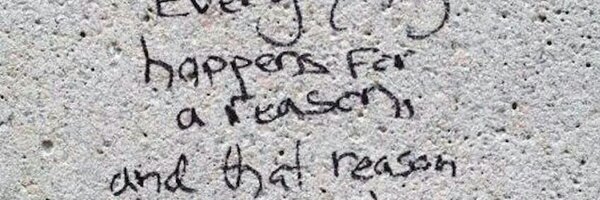 happens for
a reason,
and that reason